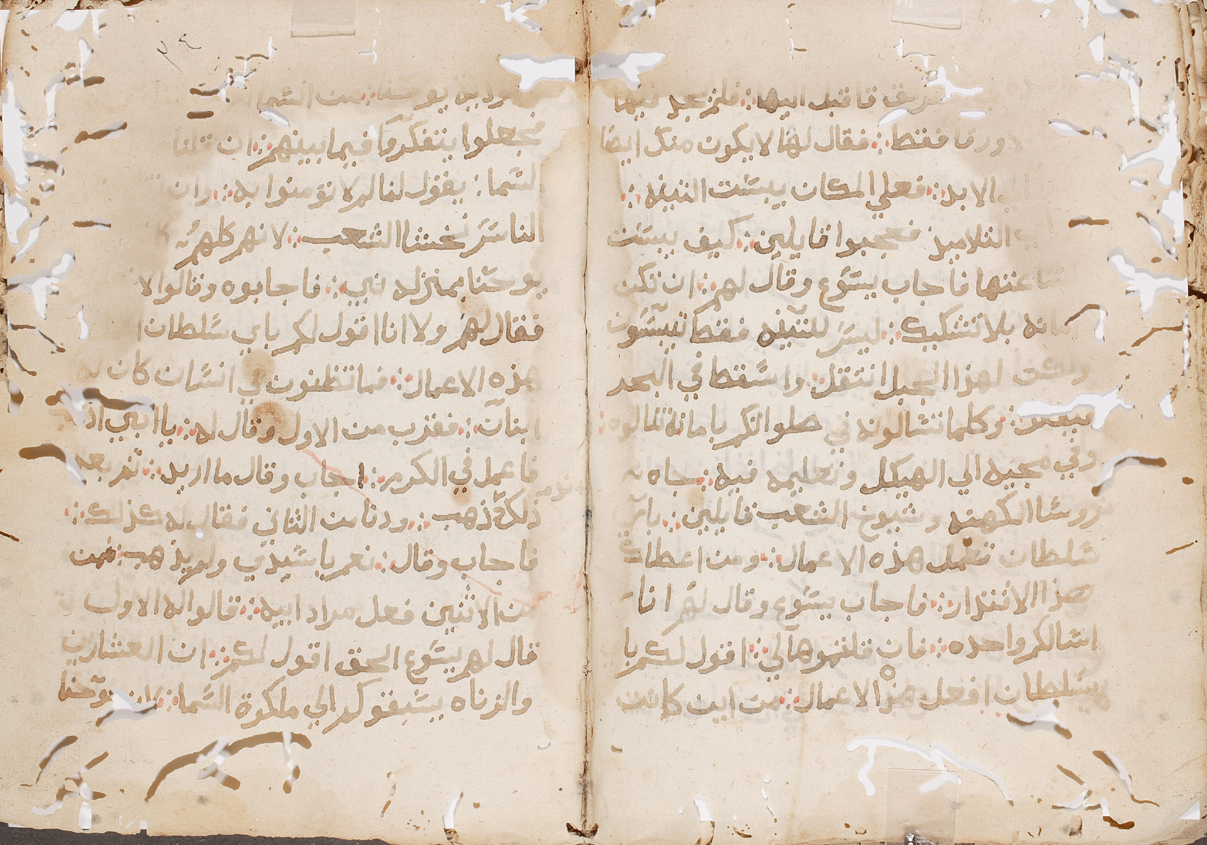 طريق فاقبل اليها :: فلم يجد فيها
ورقا فقط :: فقال لها لا يكون منك ايضا
الابد :: فعلي المكان يبست التينه ::
التلاميذ فعجبوا قايلين :: كيف يبست
ساعتها فاجاب يسوع وقال لهم :: ان تكن
امانه بلا تشكيك :: ليس للتينه فقط تيبسون
ولكن لهذا الجبل انتقل :: واسقط في البحر
فيكون :: وكلما تسالونه في صلواتكم بامانه تنالوه ::
وفي مجيه الي الهيكل وتعليمه فيه :: جاه
رووسا الكهنه وشيوخ الشعب قايلين :: باي
سلطان تعمل هذه الاعمال :: ومن اعطاك
هذا الاقتدار :: فاجاب يسوع وقال لهم انا
اسالكم واحده :: فان قلتموها لي :: اقول لكم با
ي سلطان افعل هذا الاعمال :: من اين كانت
يوحنا :: من السما
فجعلوا يتفكروا فيما بينهم :: ان قلنا
السما :: يقول لنا لم لا تومنوا به :: وان
الناس نخشا الشعب :: لانهم كلهم
يوحنا بمنزلة نبي :: فاجابوه وقالوا لا
فقال لهم ولا انا اقول لكم باي سلطان
هذه الاعمال :: فما تظنون في انسان كان له
ابنان :: فقرب من الاول وقال له :: يا ابني اذ
فاعمل في الكرم :: اجاب وقال ما اريد :: ثم بعد
ذلك ذهب :: ودنا من الثاني فقال له كذلك ::
فاجاب وقال :: نعم يا سيدي ولم يذهب :: فمن
من الاثنين فعل مراد ابيه :: قالوا له الاول
قال لهم يسوع الحق اقول لكم :: ان العشارين
والزناه يسبقوكم الي ملكوة السما :: يوحنا